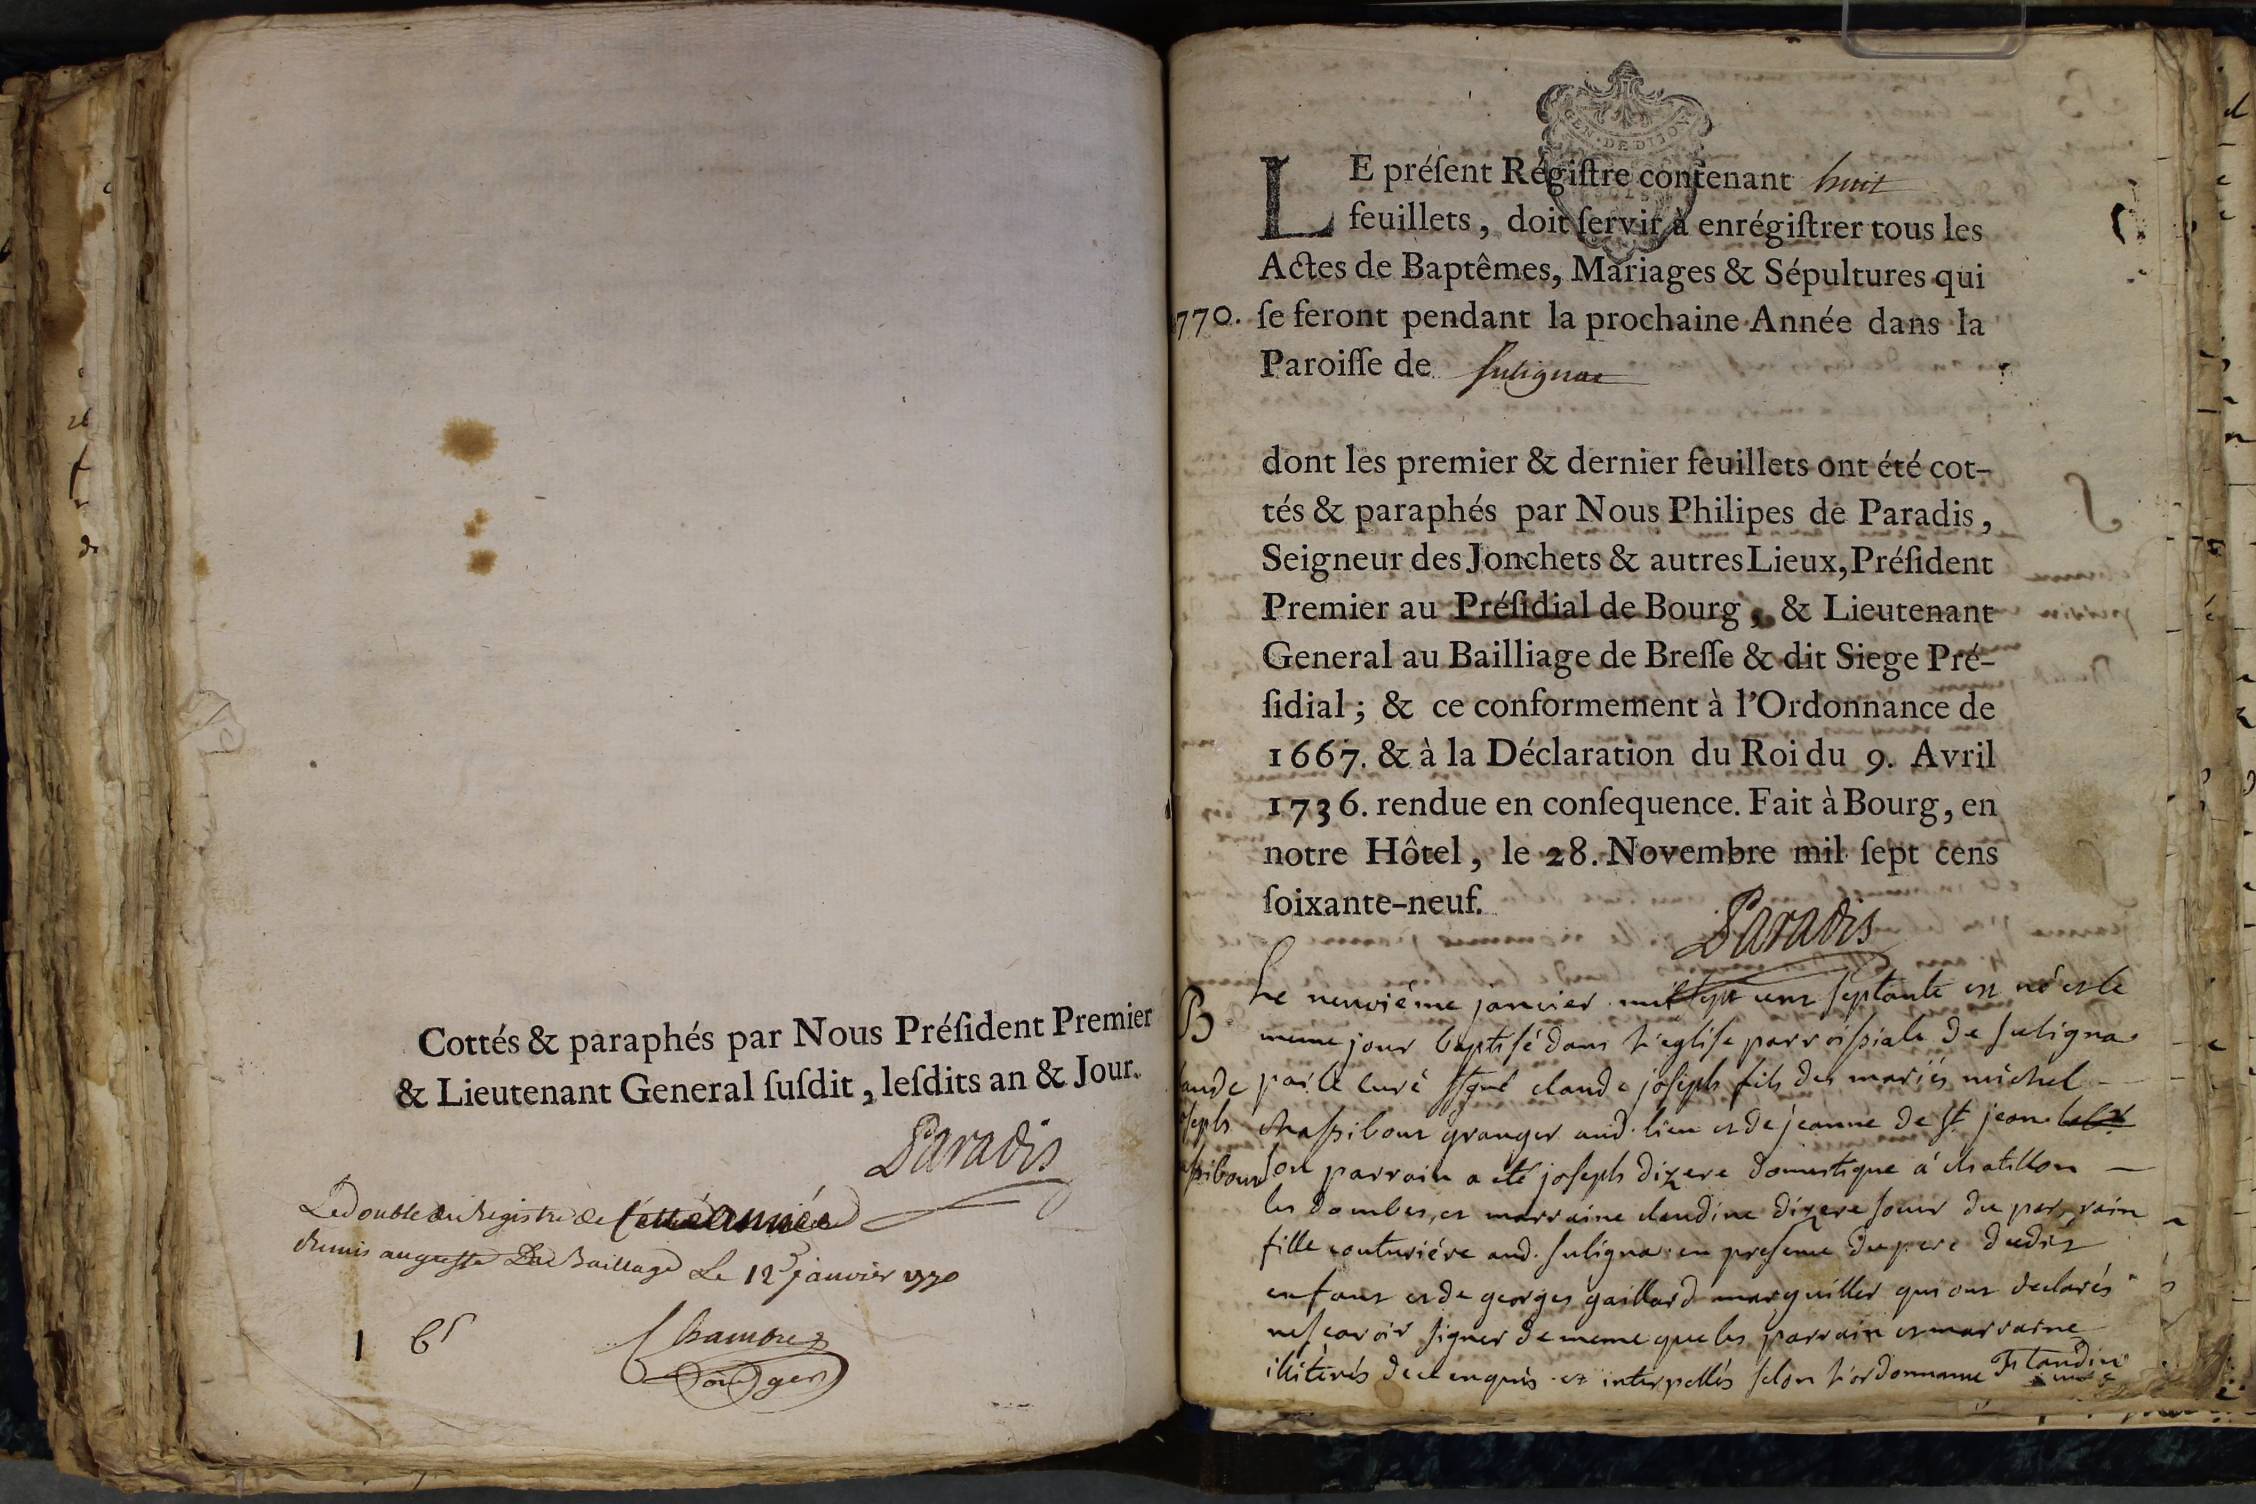 Cottés & paraphés par Nous Préſident Premier
& Lieutenant General ſuſdit, leſdits an & Jour.
Paradis
Le double du Registre de cette année
Remis au greffe du Bailliage Le 12 janvier 1770
1
GEN · DE DIJON
LE préſent Régiſtre contenant huit
feuillets, doit ſervir à enrégiſtrer tous les
Actes de Baptêmes, Mariages & Sépultures qui
770. ſe feront pendant la prochaine Année dans la
Paroiſſe de Suligna
dont les premier & dernier feuillets ont été cot-
tés & paraphés par Nous Philipes de Paradis,
Seigneur des Jonchets & autres Lieux, Préſident
Premier au Préſidial de Bourg, & Lieutenant
General au Bailliage de Breſſe & dit Siege Pré-
ſidial; & ce conformement à l'Ordonnance de
1667. & à la Déclaration du Roi du 9. Avril
1736. rendue en conſequence. Fait à Bourg, en
notre Hôtel, le 28. Novembre mil ſept cens
ſoixante-neuf.
Paradis
B
aude
oseph
Le neuviéme janvier mil sept cent septante est né et le
meme jour baptisé dans l'eglise parroissiale de suligna
par le curé ssgné claude joseph fils des mariés michel
chassibout granger aud. lieu et de jeanne de st jean
son parrain a eté joseph dizere domestique à chatillon
les dombes, et marraine claudine dizere soeur du parrain
fille couturiére aud. suligna en presence du pere dudit
enfant et de georges gaillard marguiller qui ont declarés
ne scavoir signer de meme que les parrain et marraine
illiterés de ce enquis et interpellés selon l'ordonnance